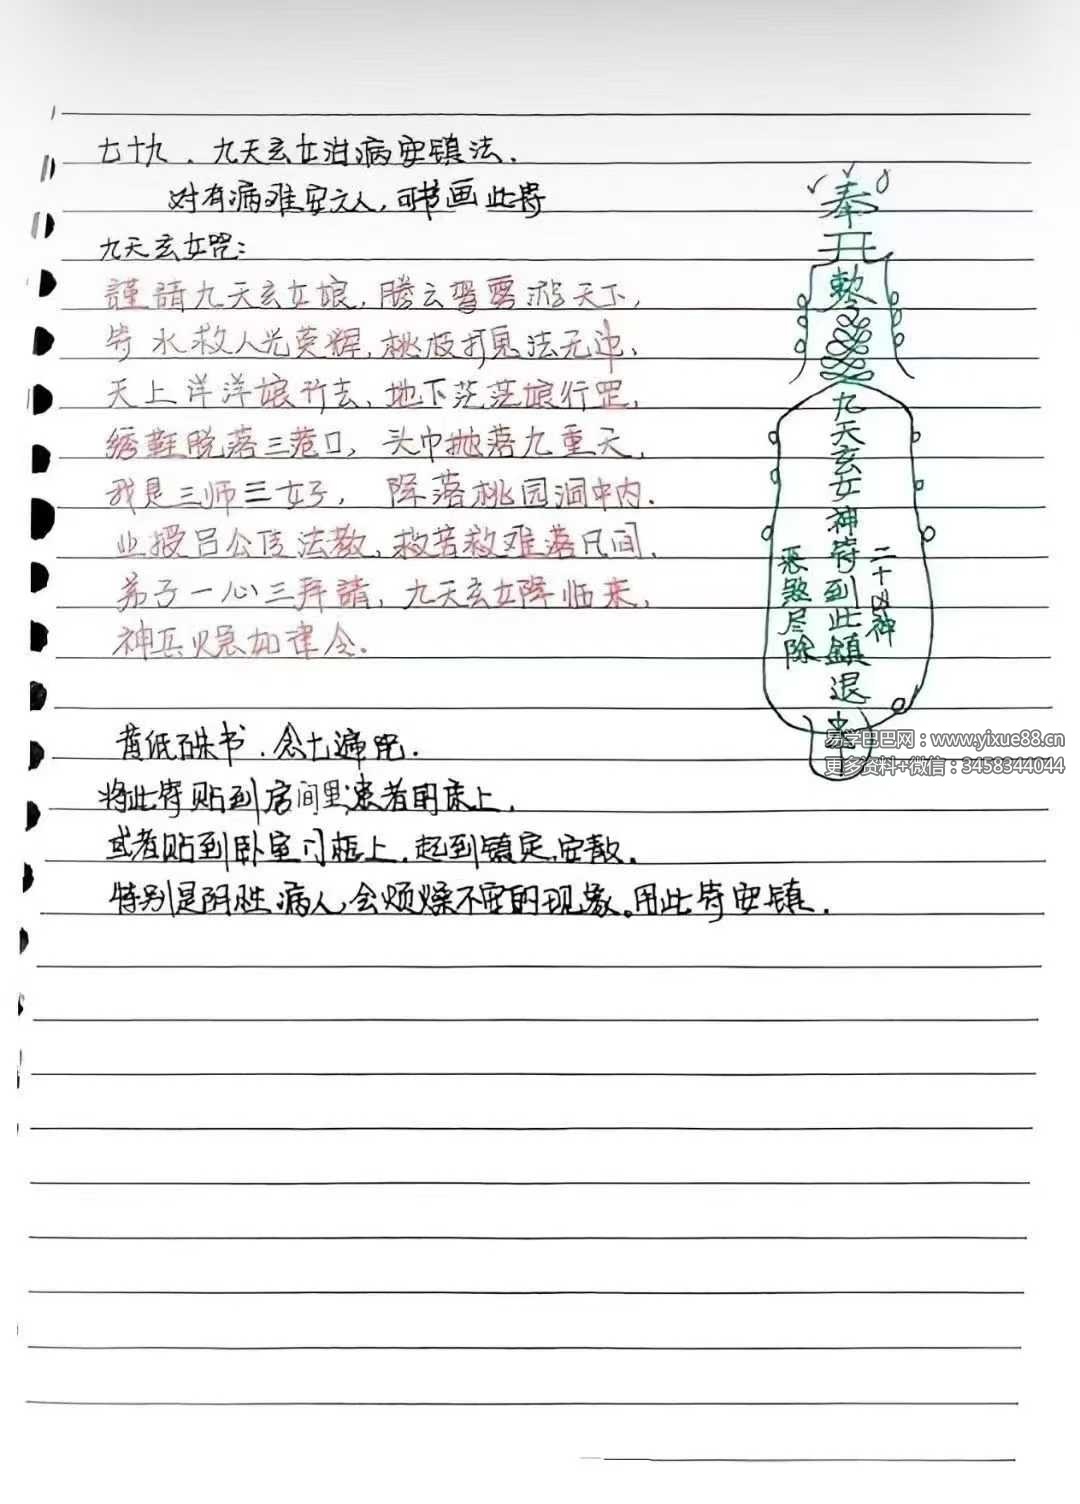 七十九．九天玄女治病安镇法．
对有病难安之人，可书画此符
九天玄女咒：
謹請九天玄女娘，腾云驾雾游天下，
符水救人光英辉，桃枝打鬼法无边，
天上洋洋娘行去，地下茫茫娘行罡，
绣鞋脱落三巷口，头巾抛落九重天，
我是三师三女子，降落桃园洞中内．
业授吕公传法教，救苦救难落凡间，
弟子一心三拜請，九天玄女降临来，
神兵火急如律令．
黄纸硃书．念七遍咒．
将此符贴到房间里，患者的床上，
或者贴到卧室门框上．起到镇定，安散．
特别是阴性病人，会烦燥不安的现象。用此符安镇．
奉
敕
九天玄女神符到此鎮退
二十凶神
恶煞尽除
易学巴巴网：www.yixue88.cn
更多资料+微信：3458344044